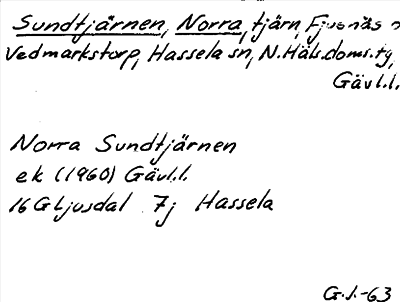 Sundtjärnen, Norra, tjärn, Fjusnäs o
Vedmarkstorp, Hassela sn, N.Häls.doms.tg,
Gävl.l.
Norra Sundtjärnen
ek (1960) Gävl.l.
16G Ljusdal 7j Hassela
G.J.-63